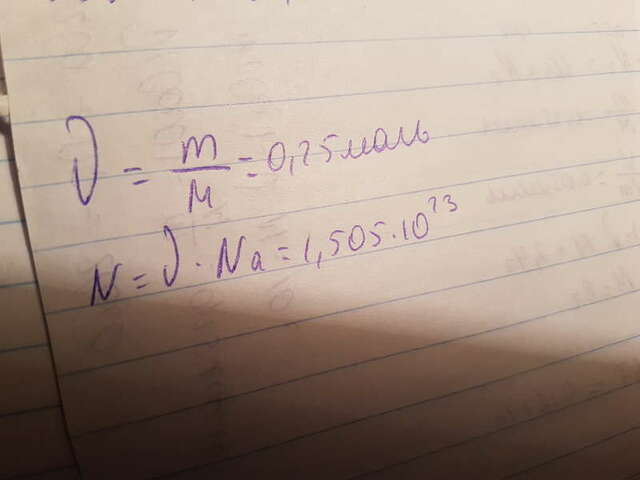 ν = m/M = 0,25 моль
N = ν · Na = 1,505 · 10²³